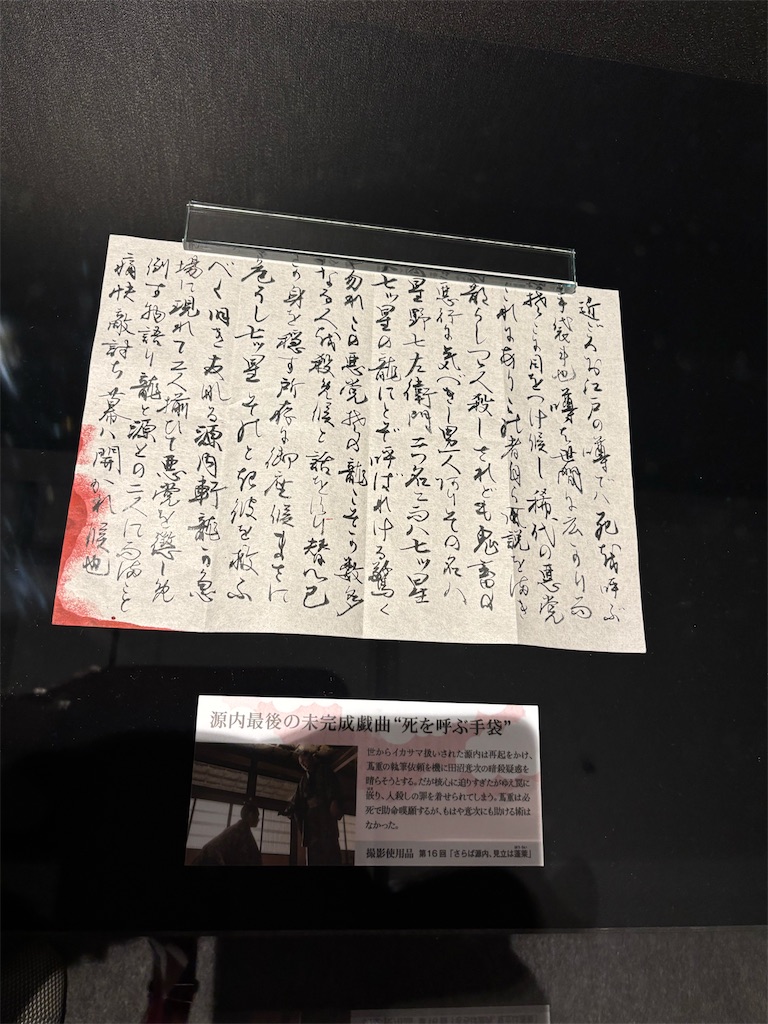 近ごろお江戸の噂でハ 死を呼ぶ
手袋也 噂を世間に広
目をつけ候し 稀代の悪党
これにあり 此者自ら風説をまき
散らし 人殺し されども鬼畜の
悪行に気づきし男一人 その名ハ
星野七左衛門 二つ名を 七ツ星
七ツ星の龍にとぞ呼ばれける 驚く
勿れ この悪党 龍こそが数多
なる人を殺せ候と 話をば すり替へ 己
が身を穏す所存に御座候 まさに
七ツ星 その 彼を救ふ
べく 旧き友 源内軒 龍が急
場に現れて 二人揃ひて悪党を懲し
倒す物語り 龍と源との二人に
痛快 敵討ち 幕ハ開かれ候也
源内最後の未完成戯曲“死を呼ぶ手袋”
世からイカサマ扱いされた源内は再起をかけ、
蔦重の執筆依頼を機に田沼意次の暗殺疑惑を
晴らそうとする。だが核心に迫りすぎたがゆえ罠に
嵌り、人殺しの罪を着せられてしまう。蔦重は必
死で助命嘆願するが、もはや意次にも助ける術は
なかった。
撮影使用品 第16回「さらば源内、見立は蓬莱」